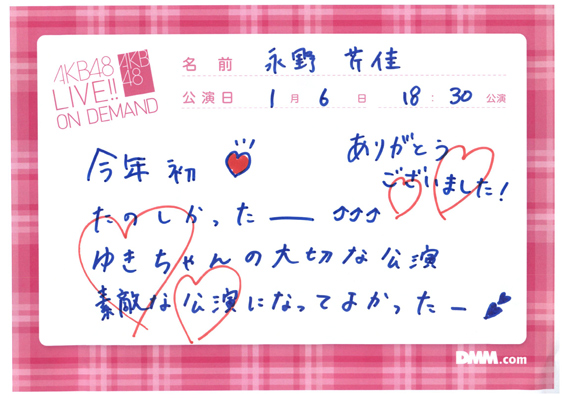 AKB48
LIVE!!
ON DEMAND
AKB
48
名前 永野 芹佳
公演日 1月 6日 18:30 公演
今年初
ありがとう
ございました!
たのしかったー ↑↑↑
ゆきちゃんの大切な公演
素敵な公演になってよかったー
DMM.com